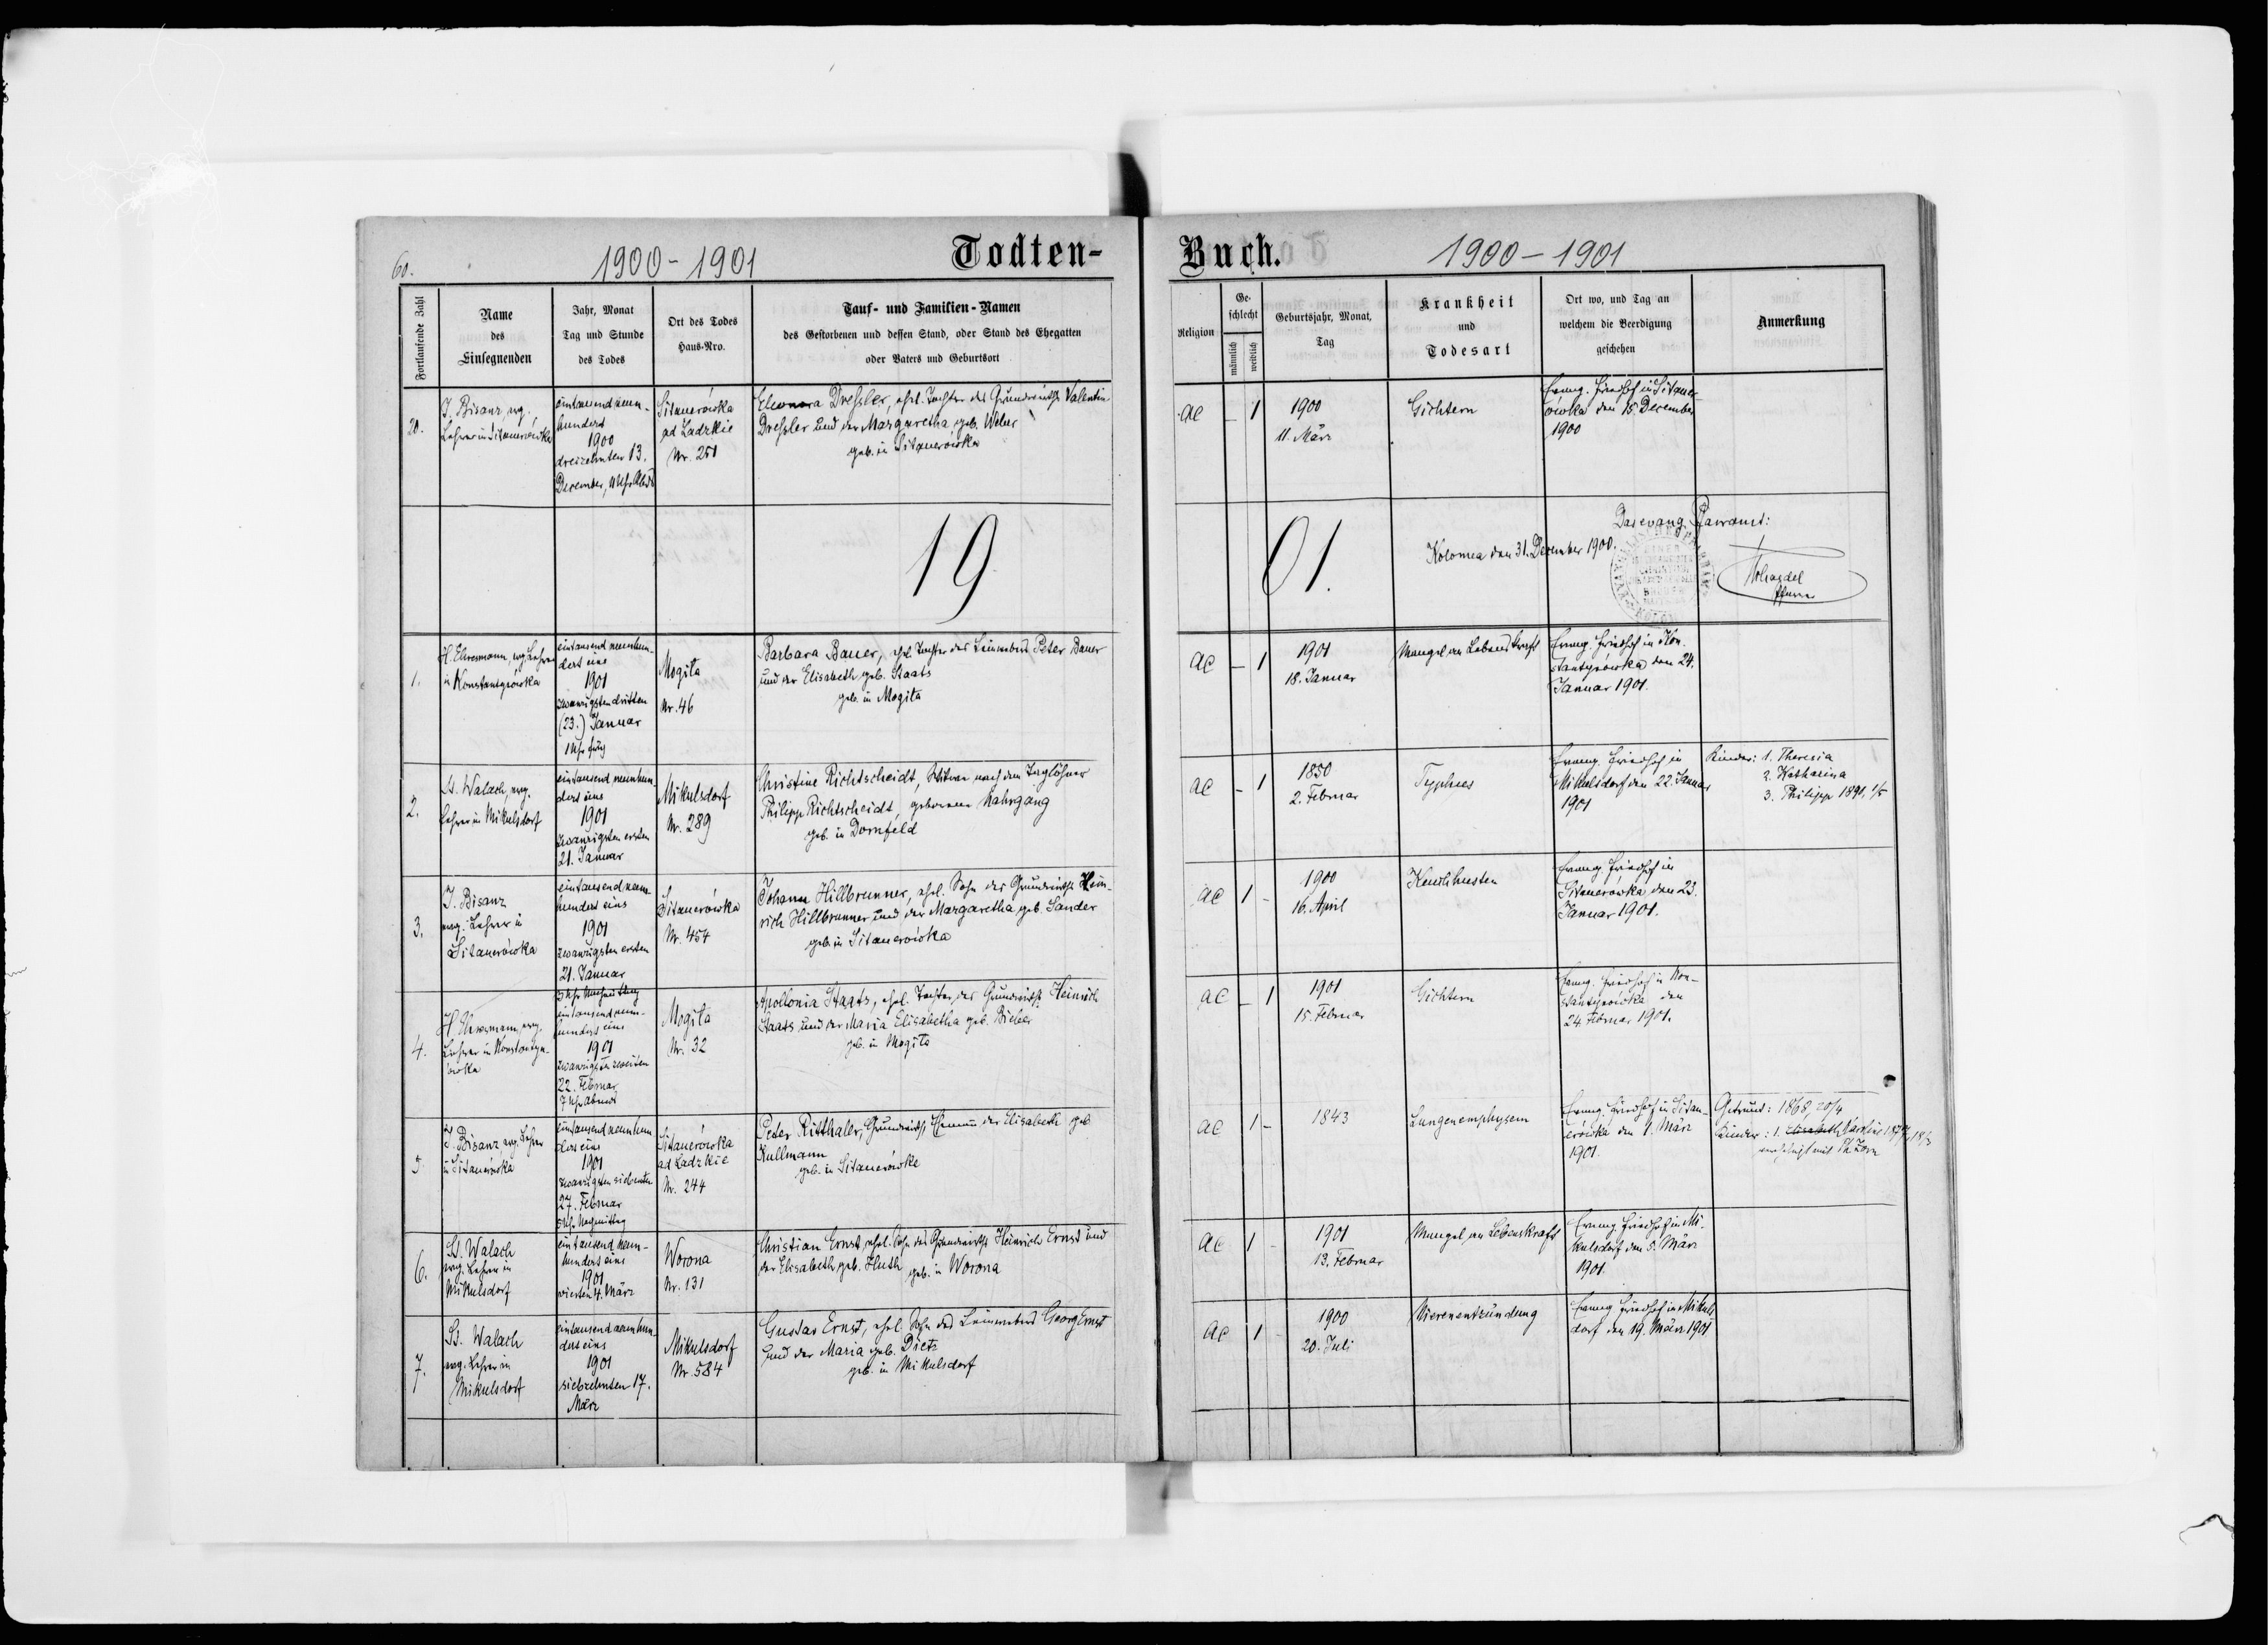 60.
1900-1901
Todten-
Buch.
1900-1901
Fortlaufende Zahl
Name
des
Einsegnenden
Jahr, Monat
Tag und Stunde
des Todes
Ort des Todes
Haus-Nro.
Tauf- und Familien-Namen
des Gestorbenen und dessen Stand, oder Stand des Ehegatten
oder Vaters und Geburtsort
Religion
Ge-
schlecht
männlich
weiblich
Geburtsjahr, Monat,
Tag
Krankheit
und
Todesart
Ort wo, und Tag an
welchem die Beerdigung
geschehen
Anmerkung
20.
J. Bisanz, evg.
Lehrer in Sitauerówka
eintausend neun-
hundert
1900
dreizehnten 13.
December,
Sitauerówka
ad Ladzkie
Nr. 251
Eleonora Dreßler, ehel. Tochter des Grundwirths Valentin
Dreßler und der Margaretha geb. Weber
geb. in Sitauerówka
ae
-
1
1900
11. März
Gichtern
Evang. Friedhof in Sitauer
ówka den 15. December
1900
19
01.
Das evang. Pfarramt:
Kolomea den 31. December 1900.
Pfarrer
1.
H. Ehresmann, evg. Lehrer
in Konstantynówka
eintausend neunhun-
dert eins
1901
zwanzigsten dritten
(23.) Januar
1 Uhr früh
Mogiła
Nr. 46
Barbara Bauer, ehel. Tochter des Leinwebers Peter Bauer
und der Elisabeth geb. Staats
geb. in Mogiła
ac
-
1
1901
18. Januar
Mangel an Lebenskraft
Evang. Friedhof in Kon-
stantynówka den 24.
Januar 1901.
2.
Walach, evg.
Lehrer in Mikulsdorf
eintausend neunhun-
dert eins
1901
zwanzigsten ersten
21. Januar
Mikulsdorf
Nr. 289
Christine Richtscheidt, Witwe nach dem Taglöhner
Philipp Richtscheidt, geborene Nahrgang
geb. in Dornfeld
ac
-
1
1850
2. Februar
Typhus
Evang. Friedhof in
Mikulsdorf den 22. Januar
1901
Kinder: 1. Theresia
2. Katharina
3. Philipp 1891, 1/5
3.
J. Bisanz
evg. Lehrer in
Sitauerówka
eintausend neun-
hundert eins
1901
zwanzigsten ersten
21. Januar
3 Uhr Nachmittag
Sitauerówka
Nr. 454
Johann Hillbrunner, ehel. Sohn des Grundwirths Hein-
rich Hillbrunner und der Margaretha geb. Sander
geb. in Sitauerówka
ac
1
-
1900
16. April
Keuchhusten
Evang. Friedhof in
Sitauerówka den 23.
Januar 1901.
4.
H. Ehresmann, evg.
Lehrer in Konstantyn-
ówka
eintausend neun-
hundert eins
1901
zwanzigsten zweiten
22. Februar
7 Uhr Abends
Mogiła
Nr. 32
Apollonia Staats, ehel. Tochter des Grundwirths Heinrich
Staats und der Maria Elisabetha geb. Bieber
geb. in Mogiła
ac
-
1
1901
15. Februar
Gichtern
Evang. Friedhof in Kon-
stantynówka den
24. Februar 1901.
5
J. Bisanz, evg. Lehrer
in Sitauerówka
eintausend neunhun
dert eins
1901
zwanzigsten siebenten
27. Februar
5 Uhr Nachmittag
Sitauerówka
ad Ladzkie
Nr. 244
Peter Ritthaler, Grundwirth, Ehemann der Elisabeth geb.
Kullmann
geb. in Sitauerówka
ac
1
-
1843
Lungenemphysem
Evang. Friedhof in Sitau-
erówka den 1. März
1901.
Getraut: 1868, 20/4
Kinder: 1. Elisabeth
verehelicht mit
6.
Walach
evg. Lehrer in
Mikulsdorf
eintausend neun-
hundert eins
1901
vierten 4. März
Worona
Nr. 131
Christian Ernst, ehel. Sohn des Grundwirths Heinrich Ernst und
der Elisabeth geb. Huth geb. in Worona
ac
1
-
1901
13. Februar
Mangel an Lebenskraft
Evang. Friedhof in Mi-
kulsdorf den 5. März
1901.
7.
Walach
evg. Lehrer in
Mikulsdorf
eintausend neunhun-
dert eins
1901
siebzehnten 17.
März
Mikulsdorf
Nr. 584
Gustav Ernst, ehel. Sohn des Leinwebers Georg Ernst
und der Maria geb. Dietz
geb. in Mikulsdorf
ac
1
-
1900
20. Juli
Nierenentzündung
Evang. Friedhof in Mikuls
dorf den 19. März 1901